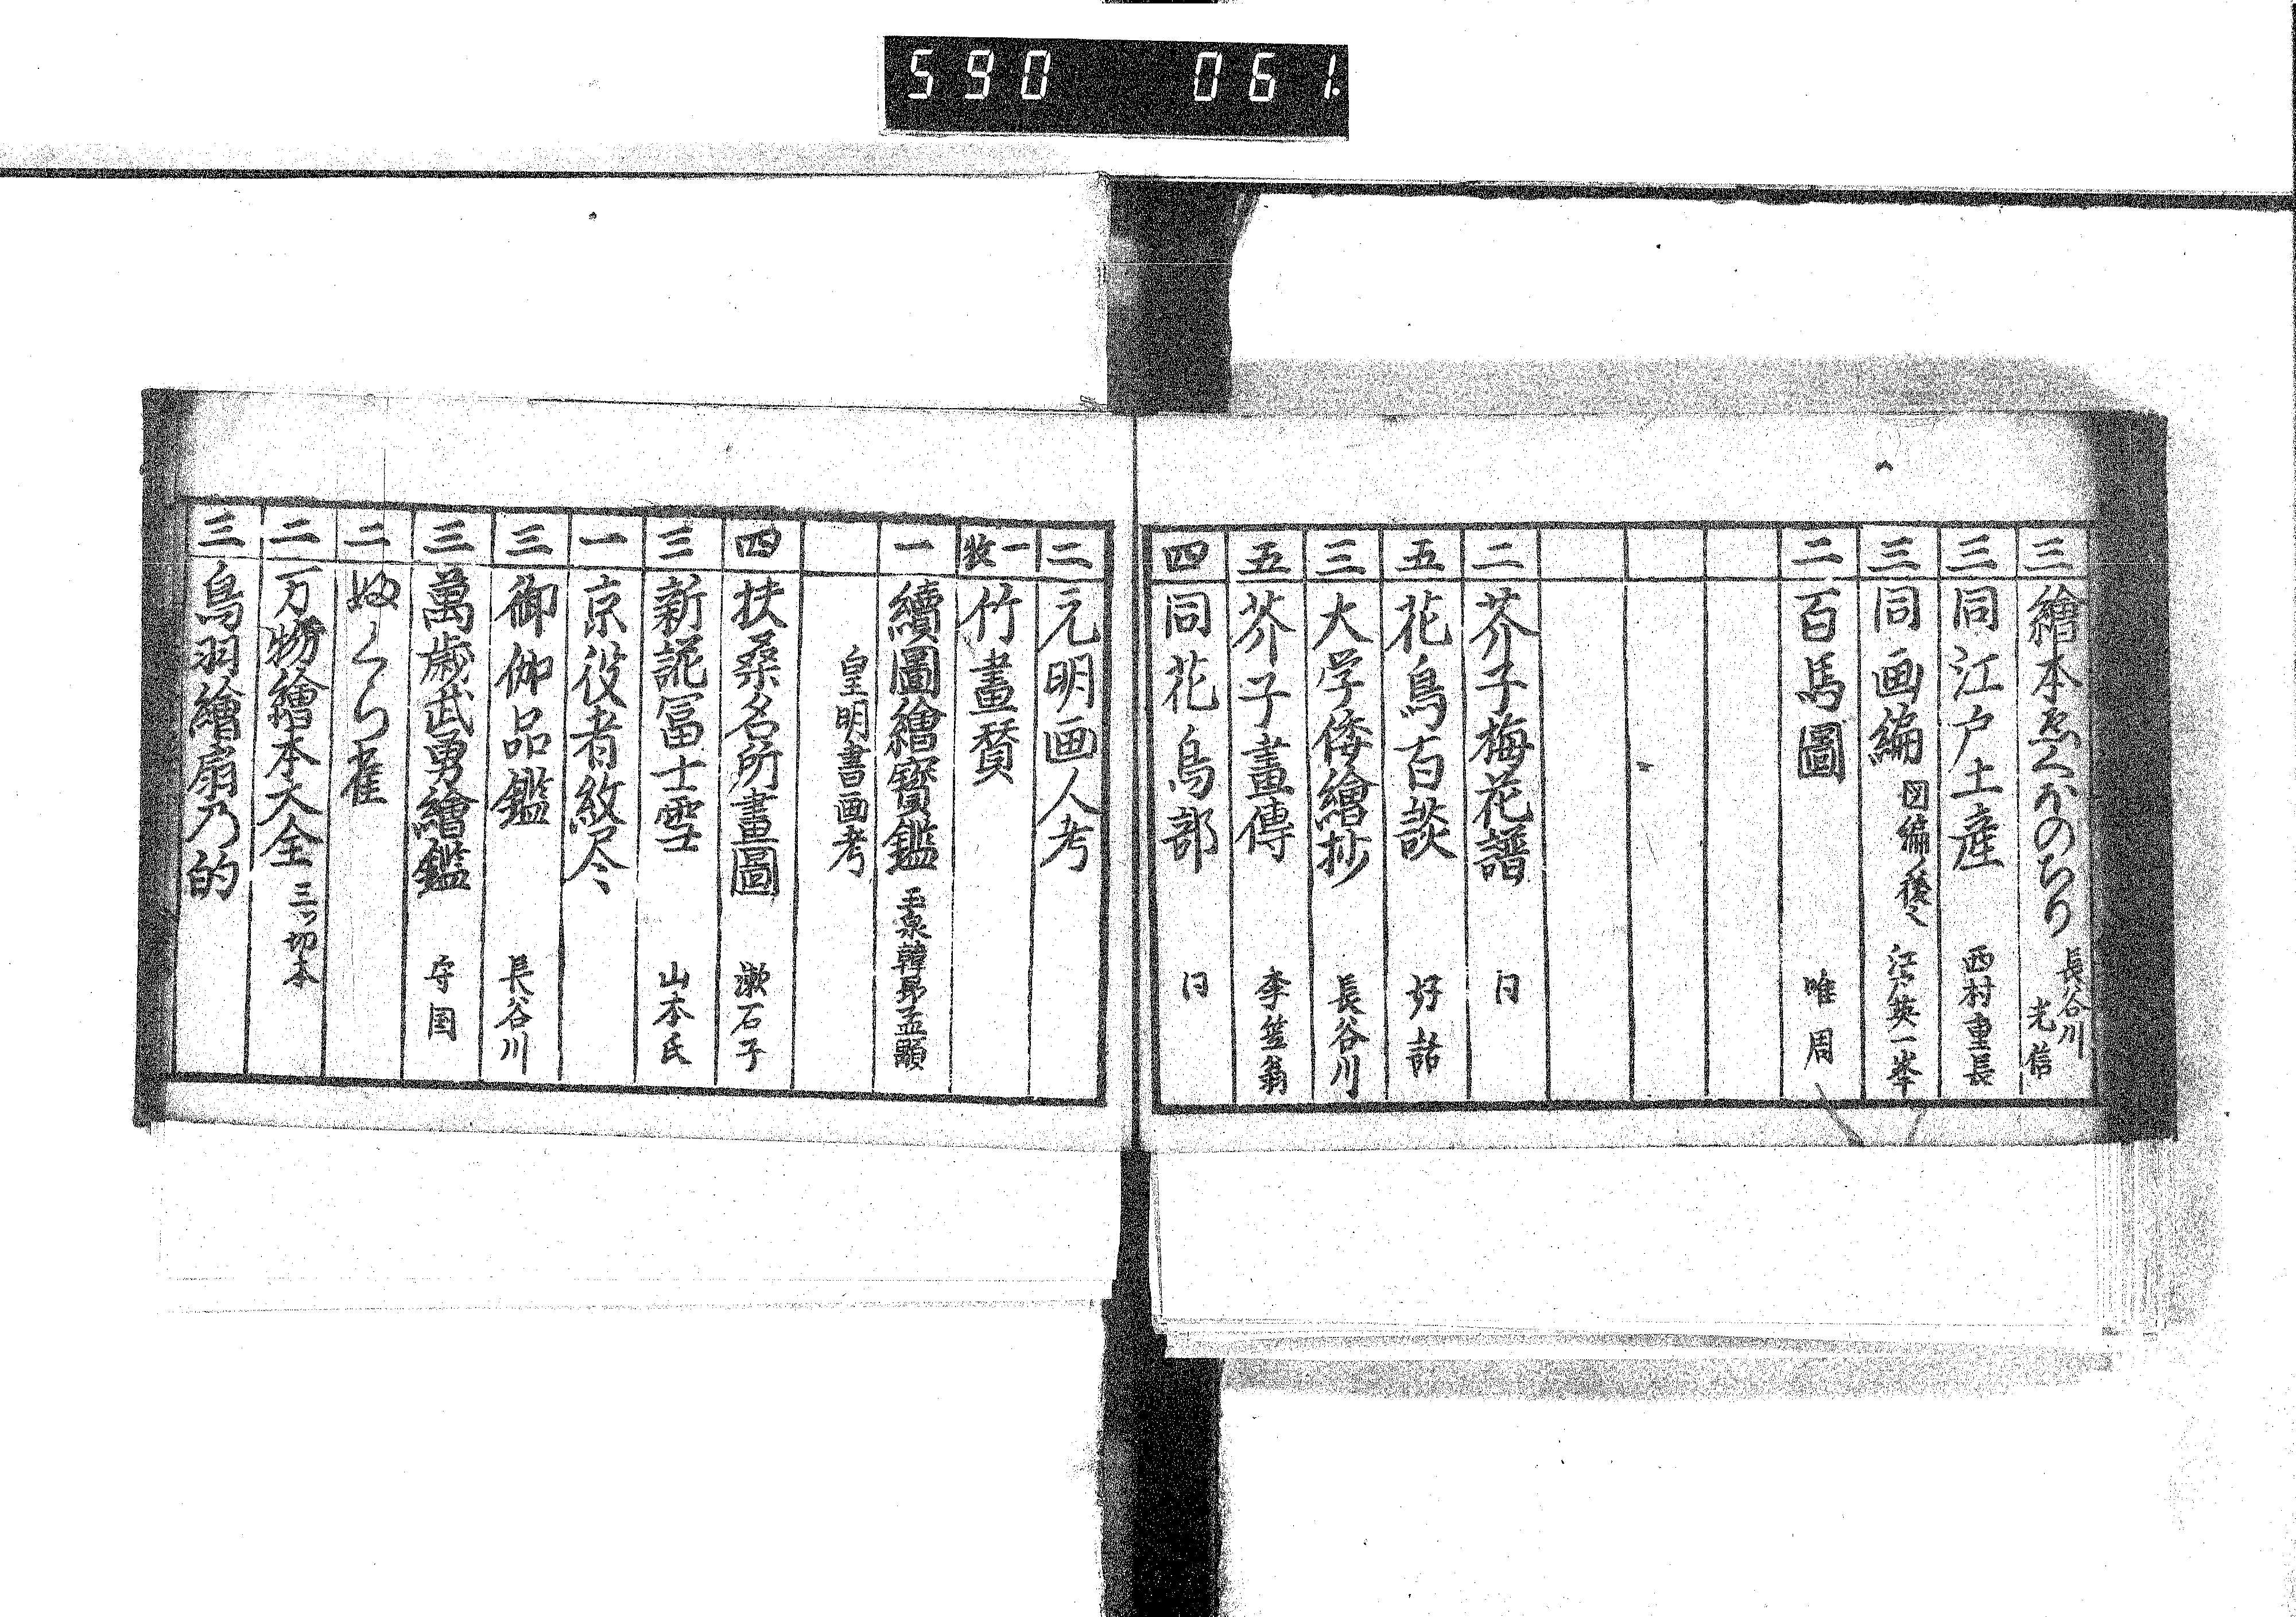 590 061
三 繪本ゑくほのちり 長谷川 光信
三 同江戸土産 西村重長
三 同画編 図編ノ後也 江戸英一峯
二 百馬圖 唯周
二 芥子梅花譜 同
五 花鳥百談 好話
三 大学倭繪抄 長谷川
五 芥子畫傳 李笠翁
四 同花鳥部 同
二 元明画人考
一枚 竹畫賛
一 續圖繪寶鑑 玉泉韓昂孟顒
皇明書画考
四 扶桑名所畫圖 漱石子
三 新詭冨士雪 山本氏
一 京役者紋尽
三 御伽品鑑 長谷川
三 萬歳武勇繪鑑 守国
二 ふくら雀
二 万物繪本大全 三ツ切本
三 鳥羽繪扇乃的